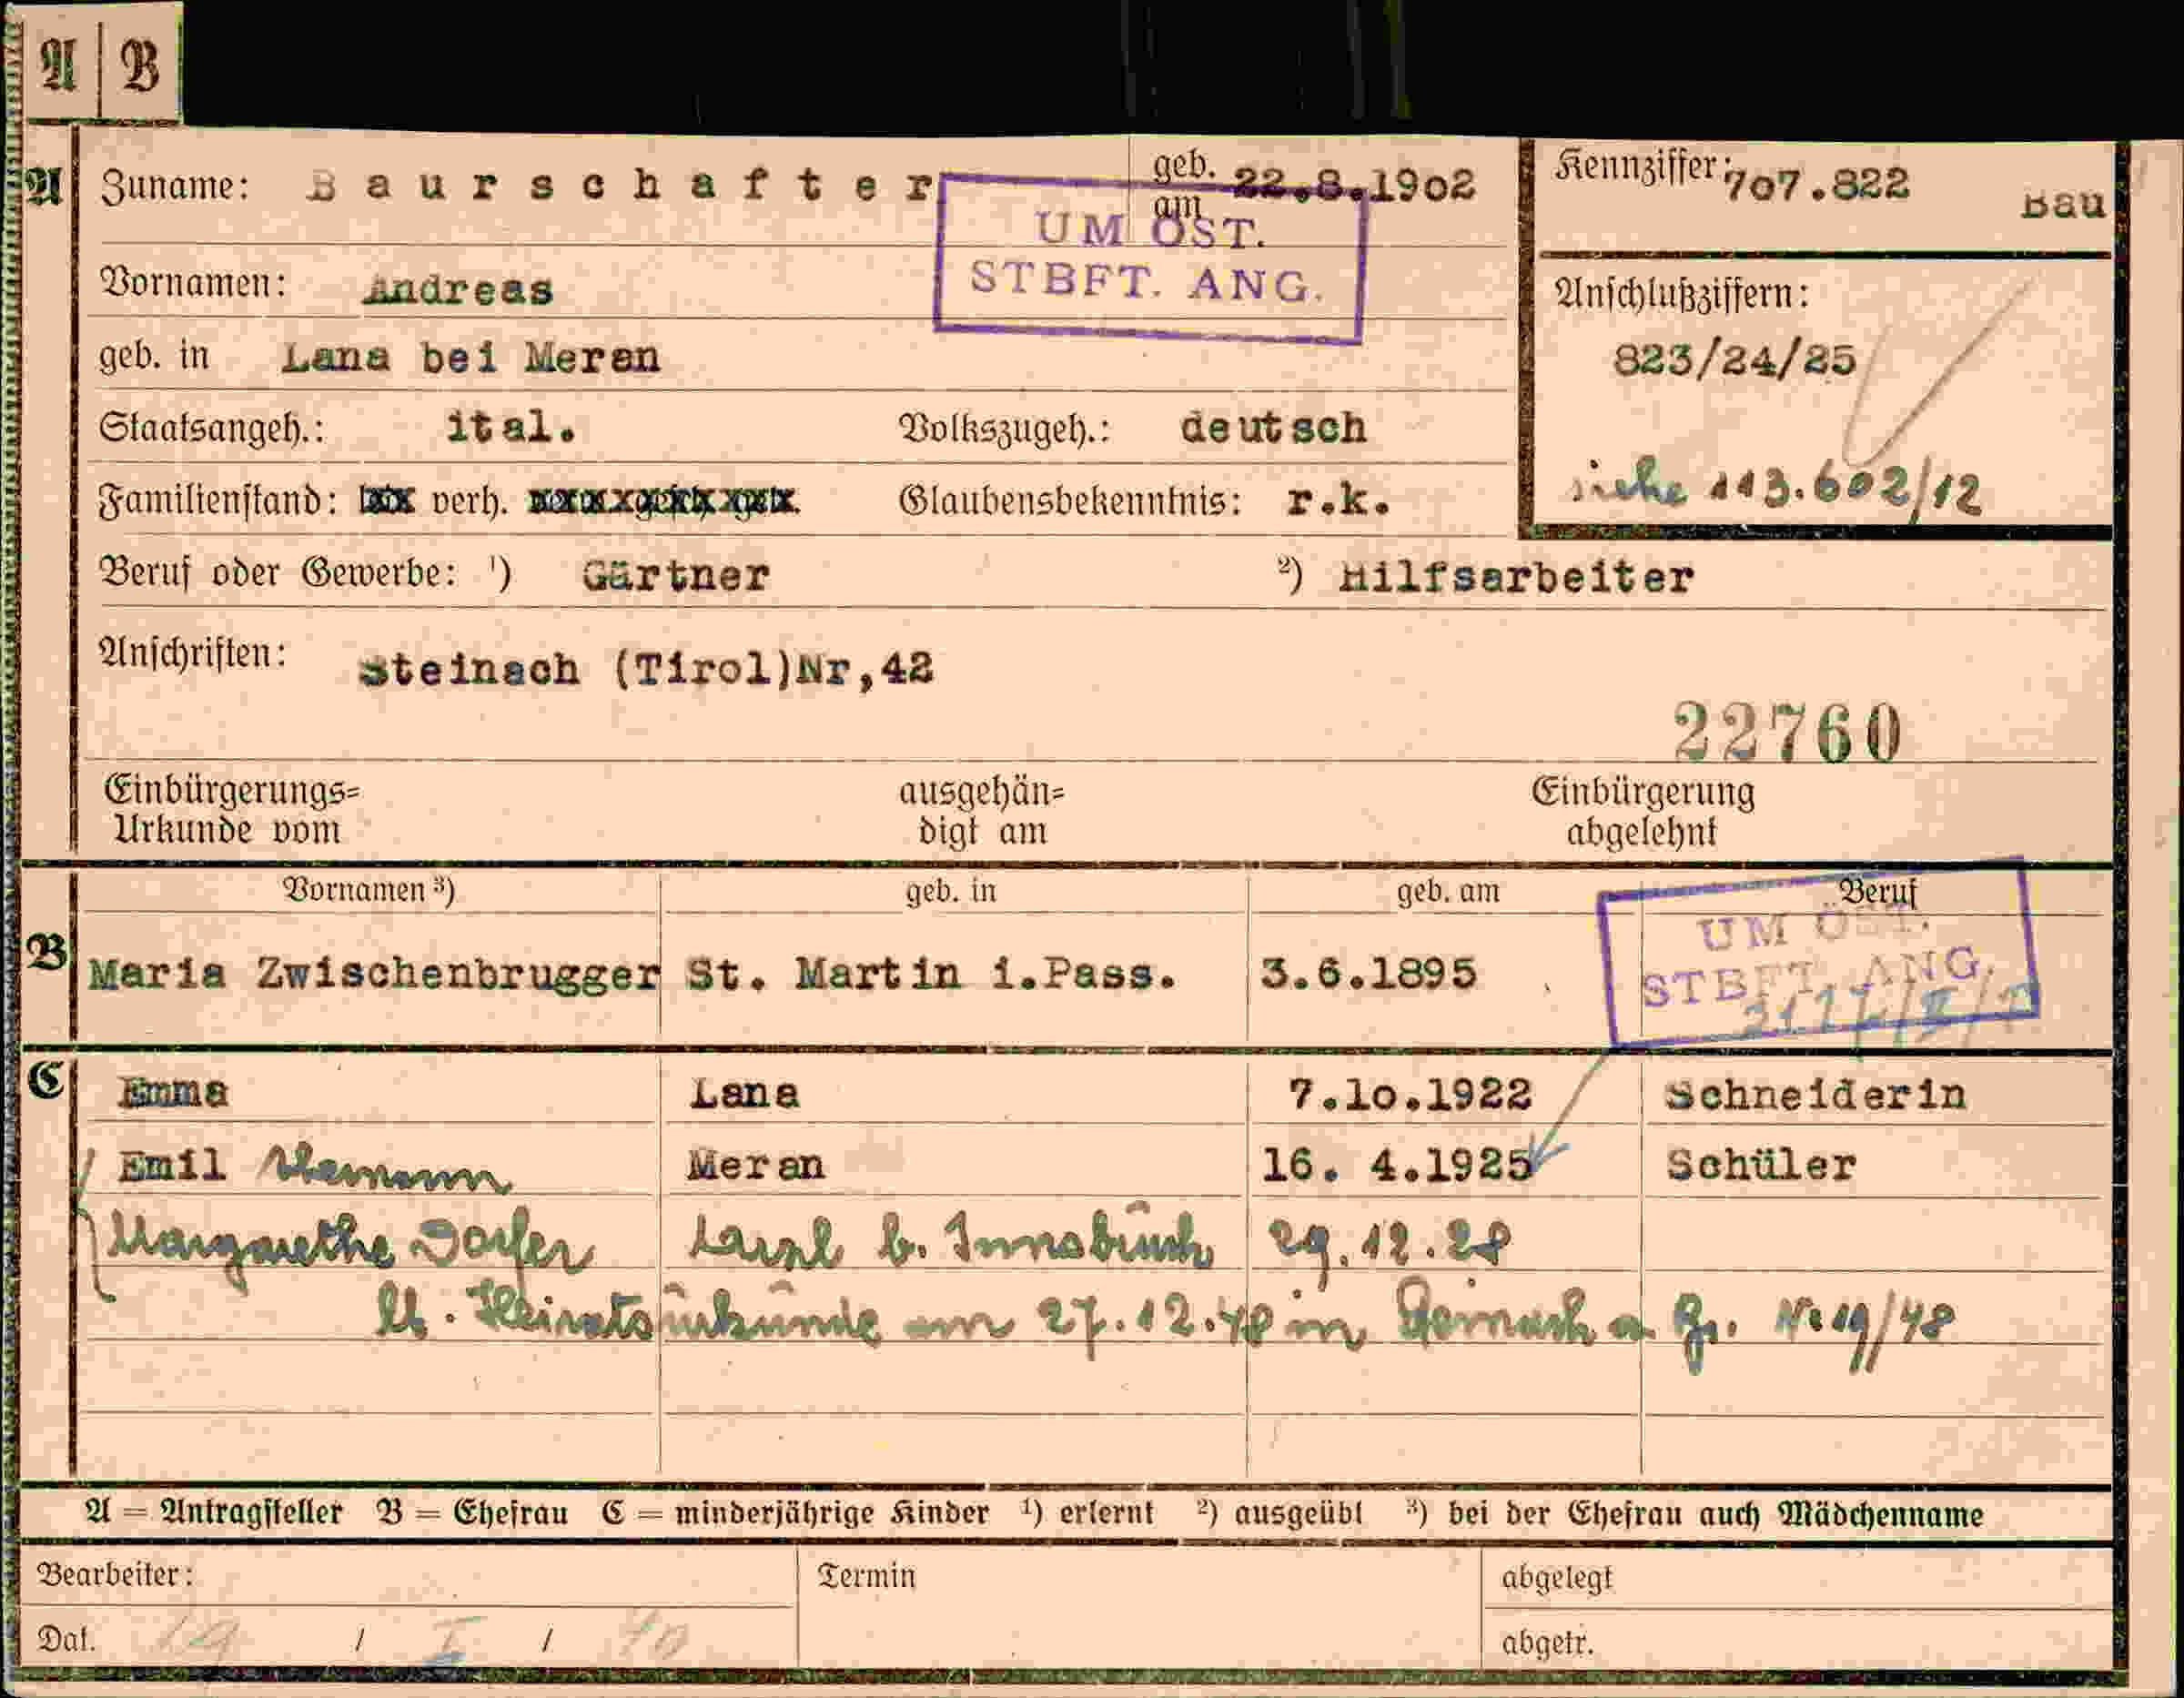 A B
A Zuname: Baurschafter geb. am 22.8.1902 Kennziffer: 707.822 Bau
UM ÖST.
STBFT. ANG.
Vornamen: Andreas Anschlußziffern:
geb. in Lana bei Meran 823/24/25
Staatsangeh.: ital. Volkszugeh.: deutsch
siehe 113.602/12
Familienstand: verh. Glaubensbekenntnis: r.k.
Beruf oder Gewerbe: ¹) Gärtner ²) Hilfsarbeiter
Anschriften: Steinach (Tirol)Nr,42
22760
Einbürgerungs= ausgehän= Einbürgerung
Urkunde vom digt am abgelehnt
Vornamen ³) geb. in geb. am Beruf
UM ÖST.
STBFT. ANG.
B Maria Zwischenbrugger St. Martin i.Pass. 3.6.1895
C Emma Lana 7.10.1922 Schneiderin
Emil Meran 16. 4.1925 Schüler
Margarethe b. Innsbruck 29.12.28
lt. Heiratsurkunde 27.12.48 in Nr 19/48
A = Antragsteller B = Ehefrau C = minderjährige Kinder ¹) erlernt ²) ausgeübt ³) bei der Ehefrau auch Mädchenname
Bearbeiter: Termin abgelegt
Dat. 19 / I / 40 abgetr.